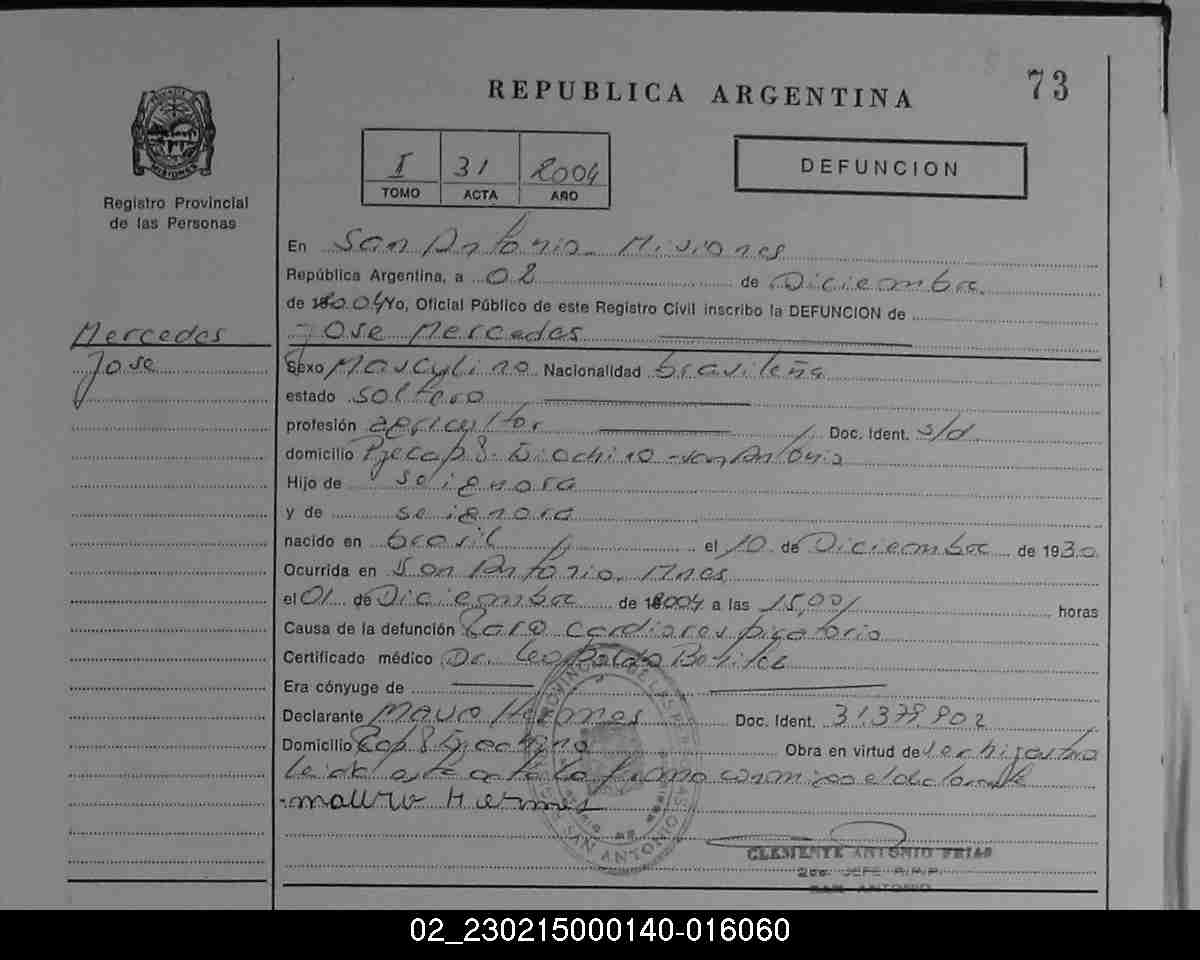 REPUBLICA ARGENTINA
73
I 31 2004
TOMO ACTA AÑO
DEFUNCION
MISIONES
Registro Provincial
de las Personas
En San Antonio - Misiones
República Argentina, a 02 de Diciembre
de 2004 Yo, Oficial Público de este Registro Civil inscribo la DEFUNCION de
Jose Mercedes
Mercedes
Jose
Sexo Masculino Nacionalidad brasileña
estado soltero
profesión agricultor Doc. Ident. s/d
domicilio San Antonio
Hijo de se ignora
y de se ignora
nacido en brasil el 10 de Diciembre de 1930
Ocurrida en San Antonio Mnes
el 01 de Diciembre de 2004 a las 15,00 horas
Causa de la defunción Paro cardiorespiratorio
Certificado médico Dr. Leopoldo
Era cónyuge de
Declarante Mauro Hermes Doc. Ident. 31379.902
Domicilio Obra en virtud de
Leida este acta la firma conmigo el declarante
mauro Hermes
SAN ANTONIO
CLEMENTE ANTONIO FRIAS
2do. JEFE R.P.P.
SAN ANTONIO
02_230215000140-016060